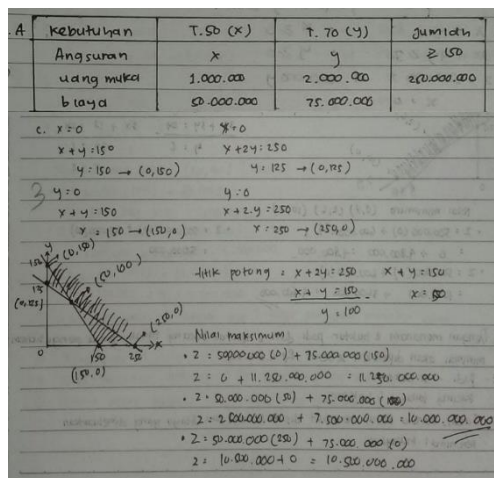 . A kebutuhan T.50 (x) T. 70 (y) Jumlah
Angsuran x y ≥ 150
uang muka 1.000.000 2.000.000 250.000.000
biaya 50.000.000 75.000.000
c. x=0 x=0
x+y=150 x+2y=250
y=150 → (0,150) y=125 → (0,125)
3 y=0 y=0
x+y=150 x+2.y=250
x=150 → (150,0) x=250 → (250,0)
titik potong = x+2y=250 x+y=150
x+y=150 x=50
y=100
y
150 (0,150)
(50,100)
(0,125)
(250,0)
x
0 150 250
(150,0)
Nilai maksimum
• Z = 50.000.000 (0) + 75.000.000 (150)
Z = 0 + 11.250.000.000 = 11.250.000.000
• Z = 50.000.000 (50) + 75.000.000 (100)
Z = 2.500.000.000 + 7.500.000.000 = 10.000.000.000
• Z = 50.000.000 (250) + 75.000.000 (0)
Z = 10.500.000 + 0 = 10.500.000.000